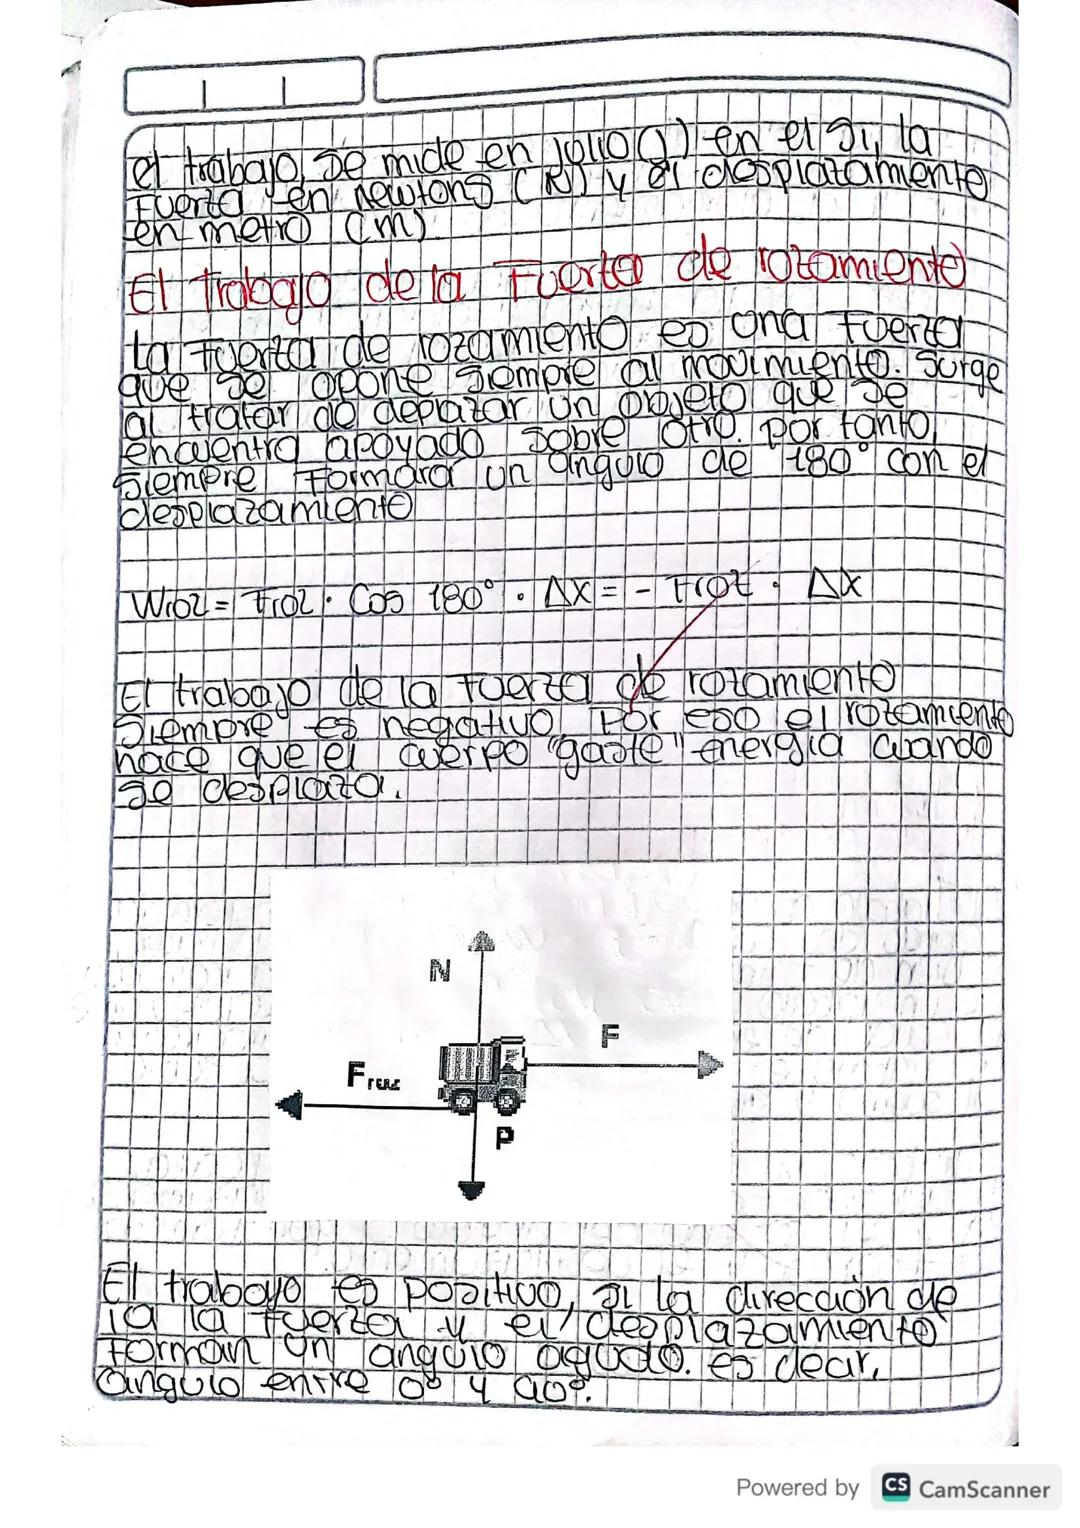 el trabajo, se mide en julio (J) en el Si, la
Fuerza en newtons (N) y el desplazamiento
en metro (m)
El Trabajo de la Fuerza de rozamiento
La Fuerza de rozamiento es una Fuerza
que se opone siempre al movimiento. Surge
al tratar de deplazar un objeto que se
encuentra apoyado sobre otro. por tanto,
Siempre Formará un ángulo de 180° con el
desplazamiento
Wroz = Froz · Cos 180° · Δx = - Froz · Δx
El trabajo de la Fuerza de rozamiento
siempre es negativo. Por eso el rozamiento
hace que el cuerpo "gaste" energía cuando
se desplaza.
N
F
Froz
P
El trabajo es positivo, si la dirección de
la la Fuerza y el desplazamiento
Forman un angulo agudo. es decir,
angulo entre 0° y 90°.
Powered by CS CamScanner